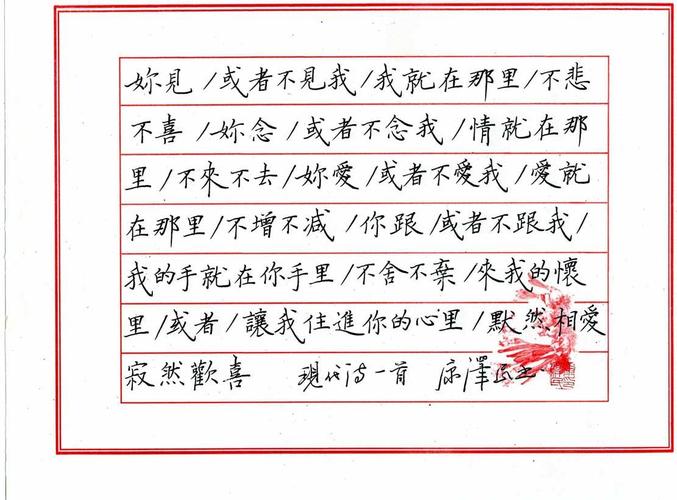 妳見/或者不見我/我就在那里/不悲
不喜/妳念/或者不念我/情就在那
里/不來不去/妳愛/或者不愛我/愛就
在那里/不增不减/你跟/或者不跟我/
我的手就在你手里/不舍不棄/來我的懷
里/或者/讓我住進你的心里/默然相愛
寂然歡喜 現代诗一首 澤